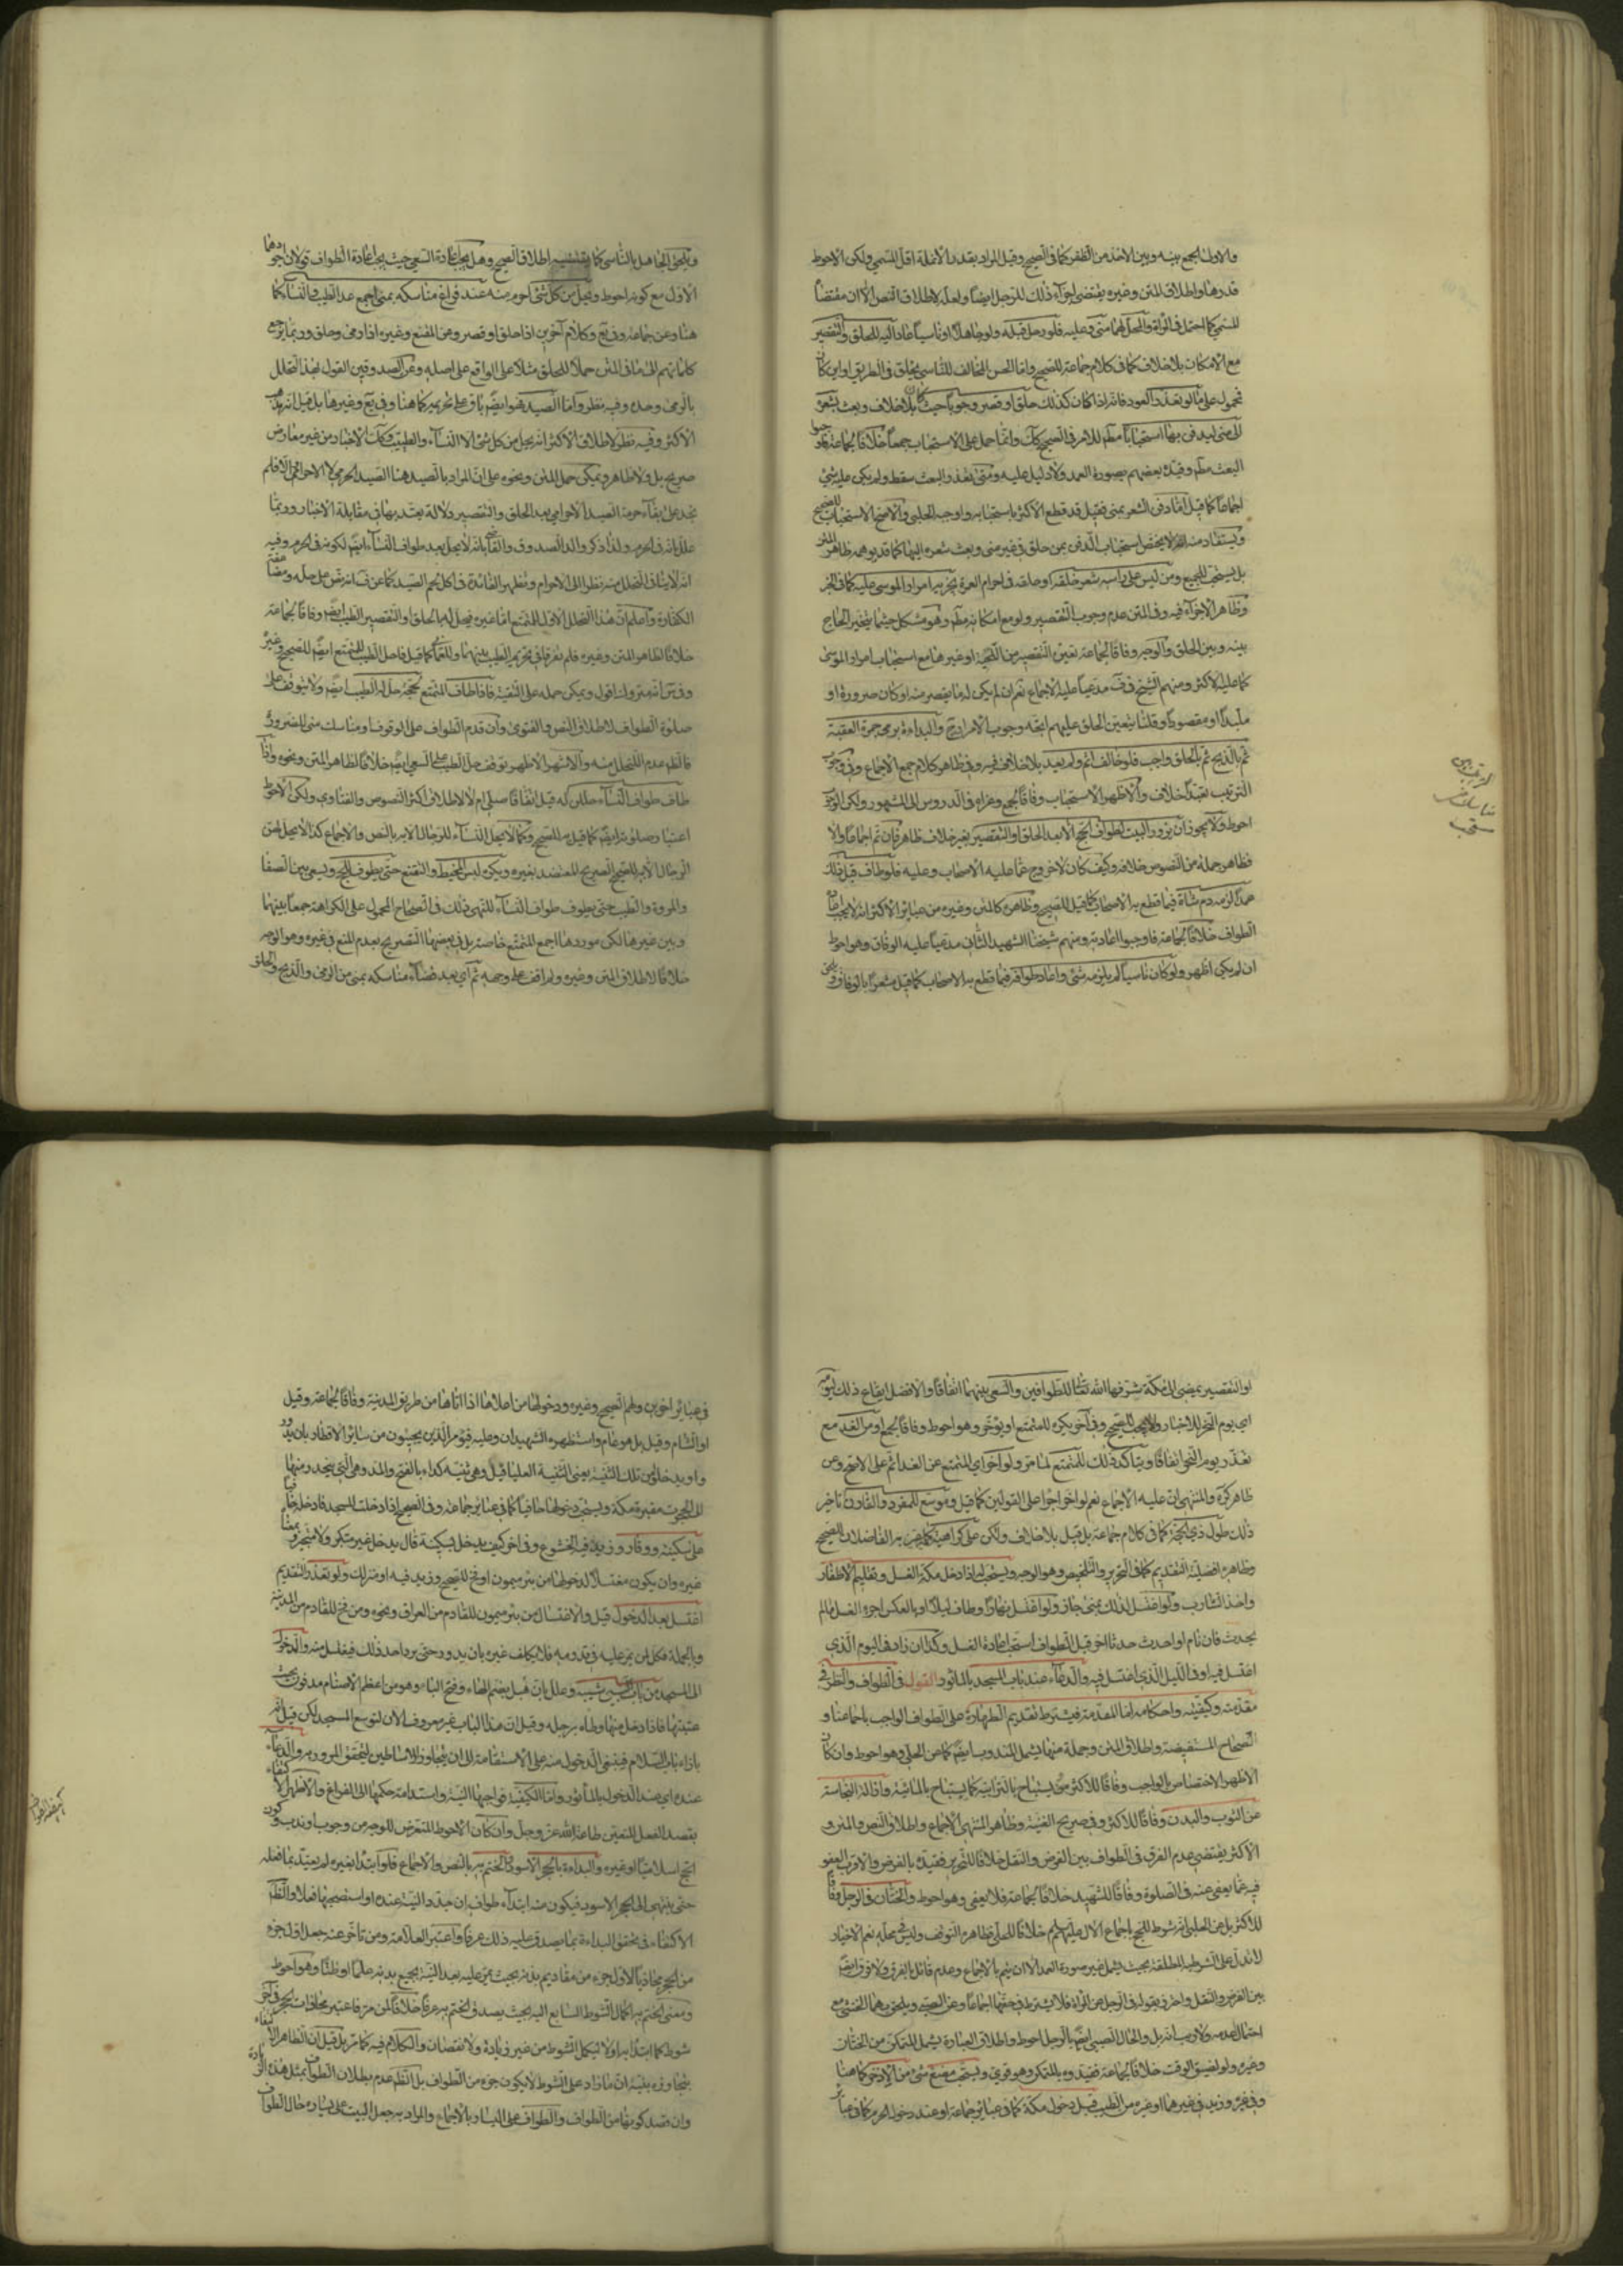 والاولى الجمع بينه وبين الاخذ من الظفر كما في الصحيح وقيل المراد بقدر الانملة اقل المسمى ولكن الاحوط
قدرها واطلاق المتن وغيره يقتضي اجزاء ذلك للرجل ايضا ولعله لاطلاق النص الا ان مقتضاه
المسمى كما احتمل في المراة والمحل لهما منى وعليه فلو رحل قبله ولو جاهلا او ناسيا عاد اليه للحلق والتقصير
مع الامكان بلا خلاف كما في كلام جماعة للصحيح واما الحسن المخالف للناسي يحلق في الطريق او اين كان
فمحمول على ما لو تعذر العود فانه اذا كان كذلك حلق او قصر وجوبا حيث كان بلا خلاف وبعث بشعره
الى منى ليدفن بها استحبابا مطم للامر في الصحيح كك وانما حمل على الاستحباب جمعا خلافا لجماعة فاوجبوا
البعث مطم وقيده بعضهم بصورة العمد ولا دليل عليه ومتى تعذر البعث سقط ولم يكن عليه شيء
اجماعا كما قيل اما دفن الشعر بمنى فقيل قد قطع الاكثر باستحبابه واوجبه الحلبي والاصح الاستحباب للصحيح
ويستفاد منه انه لا يختص استحباب الدفن بمن حلق في غير منى وبعث شعره اليها كما قد يوهمه ظاهر المتن
بل يستحب للجميع ومن ليس على راسه شعر خلقة او حلقه في احرام العمرة يجزيه امرار الموسى عليه كما في الخبر
وظاهر الاجزاء فيه وفي المتن عدم وجوب التقصير ولو مع امكانه مطم وهو مشكل حيثما يتخير الحاج
بينه وبين الحلق والوجه وفاقا لجماعة تعين التقصير من اللحية او غيرها مع استحباب امرار الموسى
كما عليه الاكثر ومنهم الشيخ في ف مدعيا عليه الاجماع نعم ان لم يكن له ما يقصر منه او كان صرورة او
ملبدا او مقصورا وقلنا بتعين الحلق عليهم اتجه وجوب الامرار ح والبداءة برمي جمرة العقبة
ثم بالذبح ثم بالحلق واجب فلو خالف اثم ولم يعد بلا خلاف فيه وفي ظاهر كلام جمع الاجماع وفي وجوب
الترتيب تعبدا خلاف والاظهر الاستحباب وفاقا لجمع وعزاه في الدروس الى المشهور ولكن الوجوب
احوط ولا يجوز ان يزور البيت لطواف الحج الا بعد الحلق او التقصير بغير خلاف ظاهر فان تم اجماعا والا
فظاهر جملة من النصوص خلافه وكيف كان لا خروج عما عليه الاصحاب وعليه فلو طاف قبل ذلك
عمدا لزمه دم شاة فيما قطع به الاصحاب كما قيل للصحيح وظاهره كالمتن وغيره من عبائر الاكثر انه لا يجب اعادة
الطواف خلافا لجماعة فاوجبوا اعادته ومنهم شيخنا الشهيد الثاني مدعيا عليه الوفاق وهو احوط
ان لم يكن اظهر ولو كان ناسيا لم يلزمه شيء واعاد طوافه فيما قطع به الاصحاب كما قيل مشعرا بالوفاق
ويلحق الجاهل بالناسي كما يقتضيه اطلاق الصحيح وهل يجب اعادة السعي حيث يجب اعادة الطواف قولان اجودهما
الاول مع كونه احوط ويحل من كل شيء احرم منه عند فراغ مناسكه بمنى اجمع عدا الطيب والنساء كما
هنا وعن جماعة وفي يع وكلام آخرين اذا حلق او قصر وعن المقنع وغيره اذا رمى وحلق وربما يرجع
كلماتهم الى ما في المتن حملا للحلق مثلا على الواقع على اصله وعن الصدوقين القول بهذا التحلل
بالرمي وحده وفيه نظر واما الصيد فهو ايضا باق على تحريمه كما هنا وفي يع وغيرها بل قيل انه مذهب
الاكثر وفيه نظر لاطلاق الاكثر انه يحل من كل شيء الا النساء والطيب وكك الاخبار من غير معارض
صريح بل ولا ظاهر ويمكن حمل المتن ونحوه على ان المراد بالصيد هنا الصيد الحرمي لا الاحرامي اذ لم
نجد على بقاء حرمة الصيد الاحرامي بعد الحلق والتقصير دلالة يعتد بها في مقابلة الاخبار وربما
علل بانه في الحرم ولذا ذكر والد الصدوق والقاضي بانه لا يحل بعد طواف النساء ايضا لكونه في الحرم وفيه
انه لا ينافي التحلل منه نظرا الى الاحرام وتظهر الفائدة في اكل لحم الصيد كما عن ف انه نص على حله
الكفارة واعلم ان هذا التحلل الاول للمتمتع اما غيره فيحل له بالحلق او التقصير الطيب ايضا وفاقا لجماعة
خلافا لظاهر المتن وغيره فلم يفرقا في تحريم الطيب بينهما وللعماني كما قيل فاحل الطيب للمتمتع ايضا للصحيح وغيره
وفي س انه متروك اقول ويمكن حمله على التقية فاذا طاف المتمتع لحجه حل له الطيب ايضا ولا يتوقف على
صلوة الطواف لاطلاق النص والفتوى وان قدم الطواف على الوقوف او مناسك منى للضرورة
فالظم عدم التحلل منه والاشهر الاظهر توقف حل الطيب على السعي ايضا خلافا لظاهر المتن ونحوه واذا
طاف طواف النساء حللن له قيل اتفاقا صلى ام لا لاطلاق اكثر النصوص والفتاوى ولكن الاحوط
اعتبار صلوته ايضا كما قيل به للصحيح وكما لا يحل النساء للرجال الا به بالنص والاجماع كذا لا يحل لهن
الرجال الا به للصحيح الصريح المعتضد بغيره ويكره لبس المخيط والتقنع حتى يطوف للحج ويسعى بين الصفا
والمروة والطيب حتى يطوف طواف النساء للنهي عن ذلك في الصحاح المحمول على الكراهة جمعا بينها
وبين غيرها لكن موردها اجمع المتمتع خاصة بل في بعضها التصريح بعدم المنع في غيره وهو الوجه
خلافا لاطلاق المتن وغيره ولم اقف على وجهه ثم اي بعد قضاء مناسكه بمنى من الرمي والذبح والحلق
او التقصير يمضي الى مكة شرفها الله تعالى للطوافين والسعي بينهما اتفاقا والافضل ايقاع ذلك ليومه
اي يوم النحر للاخبار ولا يجب للصحيح وفي آخر يكره للمتمتع ان يؤخر وهو احوط وفاقا لجمع او من الغد مع
تعذر يوم النحر اتفاقا ويتاكد ذلك للمتمتع لما مر ولو اخر اي المتمتع عن الغد اثم على الاصح وعن
ظاهر كرة والمنتهى ان عليه الاجماع نعم لو اخر اجزا على القولين كما قيل وموسع للمفرد والقارن تاخير
ذلك طول ذي الحجة كما في كلام جماعة بل قيل بلا خلاف ولكن على كراهية كما صرح به الفاضلان للصحيح
وظاهره افضلية التقديم كما في التحرير والتلخيص وهو الوجه ويستحب له اذا دخل مكة الغسل وتقليم الاظفار
واخذ الشارب ولو اغتسل لذلك بمنى جاز ولو اغتسل نهارا وطاف ليلا او بالعكس اجزءه الغسل ما لم
يحدث فان نام او احدث حدثا اخر قبل الطواف استحب اعادة الغسل وكذا ان زاد في اليوم الذي
اغتسل فيه او في الليل الذي اغتسل فيه والدعاء عند باب المسجد بالماثور القول في الطواف والنظر في
مقدمته وكيفيته واحكامه اما المقدمة فيشترط تقديم الطهارة على الطواف الواجب باجماعنا و
الصحاح المستفيضة واطلاق المتن وجملة منها يشمل المندوب ايضا كما عن الحلبي وهو احوط وان كان
الاظهر الاختصاص بالواجب وفاقا للاكثر ويستباح بالترابية كما يستباح بالمائية وازالة النجاسة
عن الثوب والبدن وفاقا للاكثر وفي صريح الغنية وظاهر المنتهى الاجماع واطلاق النص والمتن و
الاكثر يقتضي عدم الفرق في الطواف بين الفرض والنفل خلافا للتحرير فقيده بالفرض والاقرب العفو
فيه عما يعفى عنه في الصلوة وفاقا للشهيد خلافا لجماعة فلا يعفى وهو احوط والختان في الرجل وفاقا
للاكثر بل عن الحلبي انه شرط للحج باجماع الال عليهم السلام خلافا للحلي فظاهره التوقف وليس في محله نعم الاخبار
لا تدل على الشرطية المطلقة بحيث يشمل غير صورة العمد الا ان يتم بالاجماع وعدم قائل بالفرق ولا فرق ايضا
بين الفرض والنفل واحترز بقوله في الرجل عن المراة فلا يشترط في حقها اجماعا وعن الصبي ويلحق بهما الخنثى مع
احتمال العدم ولا ريب انه بل والحاق الصبي ايضا بالرجل احوط واطلاق العبارة يشمل المتمكن من الختان
وغيره ولو لضيق الوقت خلافا لجماعة فقيدوه بالمتمكن وهو قوي ويستحب مضغ شيء من الاذخر كما هنا
وفي يع وزيد في غيرهما او غيره من الطيب قبل دخول مكة كما في عبائر جماعة او عند دخول الحرم كما في عبائر
في عبائر اخرين ولهم الصحيح وغيره ودخولها من اعلاها اذا اتاها من طريق المدينة وفاقا لجماعة وقيل
او الشام وقيل بل هو عام واستظهره الشهيدان وعليه فيؤمر الذين يجيئون من سائر الاقطار بان يدوروا
و او يدخلوا من تلك الثنية يعنى الثنية العليا قيل وهي ثنية كداء بالفتح والمد وهي التي ينحدر منها
الى الحجون مقبرة مكة ويستحب دخولها حافيا كما في عبائر جماعة وفي الصحيح اذا دخلت المسجد فادخله حافيا
على سكينة ووقار وزيد فيه الخشوع وفي اخر كيف يدخل بسكينة قال يدخل غير متكبر ولا متجبر
غيره وان يكون مغتسلا لدخولها من بئر ميمون او فخ للصحيح وزيد فيه او منزلك ولو تعذر التقديم
اغتسل بعد الدخول قيل والاغتسال من بئر ميمون للقادم من العراق ونحوه ومن فخ للقادم من المدينة
وبالجملة فكل من يمر عليه في قدومه فلا يكلف غيره بان يدور حتى يرد احد ذلك فيغتسل منه والدخول
الى المسجد من باب بني شيبة وعلل بان هبل بضم الهاء وفتح الباء وهو من اعظم الاصنام مدفون تحت
عتبتها فاذا دخل منها وطاه برجله وقيل ان هذا الباب غير معروف الان لتوسع المسجد لكن قيل انه
بازاء باب السلام فينبغي الدخول منه على الاستقامة الى ان يتجاوز الاساطين ليتحقق المرور به والدعاء
عنده اي عند الدخول بالمأثور واما الكيفية فواجبها النية واستدامة حكمها الى الفراغ والاظهر الاكتفاء
بقصد الفعل المتعين طاعة لله عز وجل وان كان الاحوط التعرض للوجه من وجوب او ندب وكون
الحج اسلاميا او غيره والبداءة بالحجر الاسود والختم به بالنص والاجماع فلو ابتدا بغيره لم يعتد بما فعله
حتى ينتهي الى الحجر الاسود فيكون منه ابتداء طوافه ان جدد النية عنده او استصحبها فعلا والظم
الاكتفاء في تحقق البداءة بما يصدق عليه ذلك عرفا واعتبر العلامة ومن تاخر عنه جعل اول جزء
من الحجر محاذيا لاول جزء من مقاديم بدنه بحيث يمر عليه بعد النية بجميع بدنه علما او ظنا وهو احوط
ومعنى الختم به اكمال الشوط السابع اليه بحيث يصدق الختم به عرفا خلافا لمن مر فاعتبر محاذات الحجر في آخر
شوط كما ابتدأ به اولا ليكمل الشوط من غير زيادة ولا نقصان والكلام فيه كما مر بل قيل ان الظاهر الاكتفاء
بتجاوزه بنية ان ما زاد على الشوط لا يكون جزء من الطواف بل الظم عدم بطلان الطواف بمثل هذه الزيادة
وان قصد كونها من الطواف والطواف على اليسار بالاجماع والمراد به جعل البيت على يساره حال الطواف